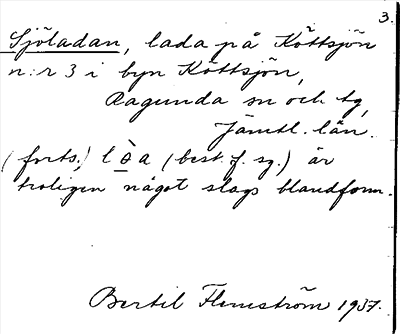 3.
Sjöladan, lada på Köttsjön
n:r 3 i byn Köttsjön,
Ragunda sn och tg,
Jämtl. län.
(forts.) l ò a (best. f. sg.) är
troligen något slags blandform.
Bertil Flemström 1937.